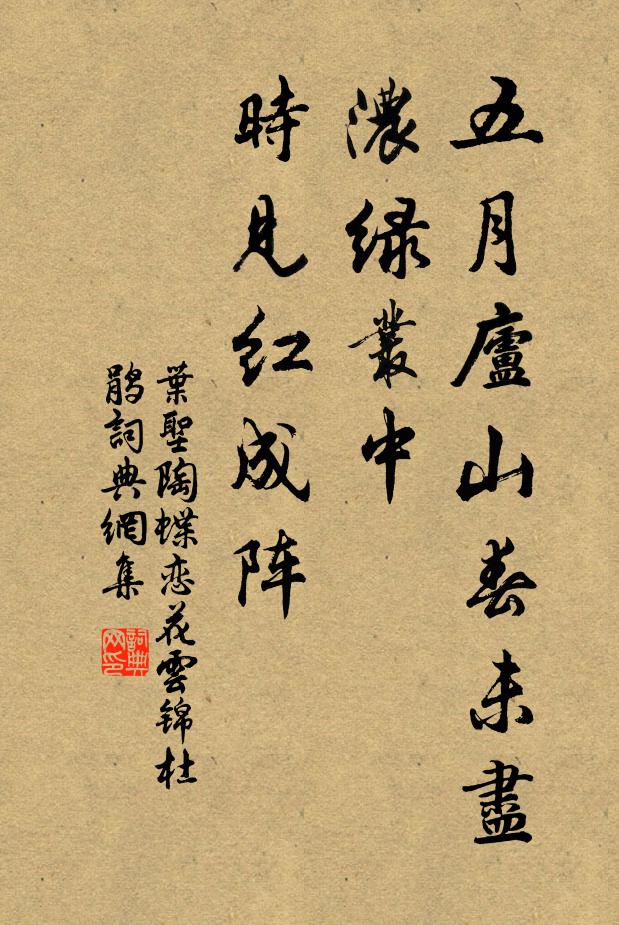 五月廬山春未盡
濃緑叢中
時見紅成阵
葉聖陶蝶恋花雲锦杜
鹃詞典網集
詞典网印